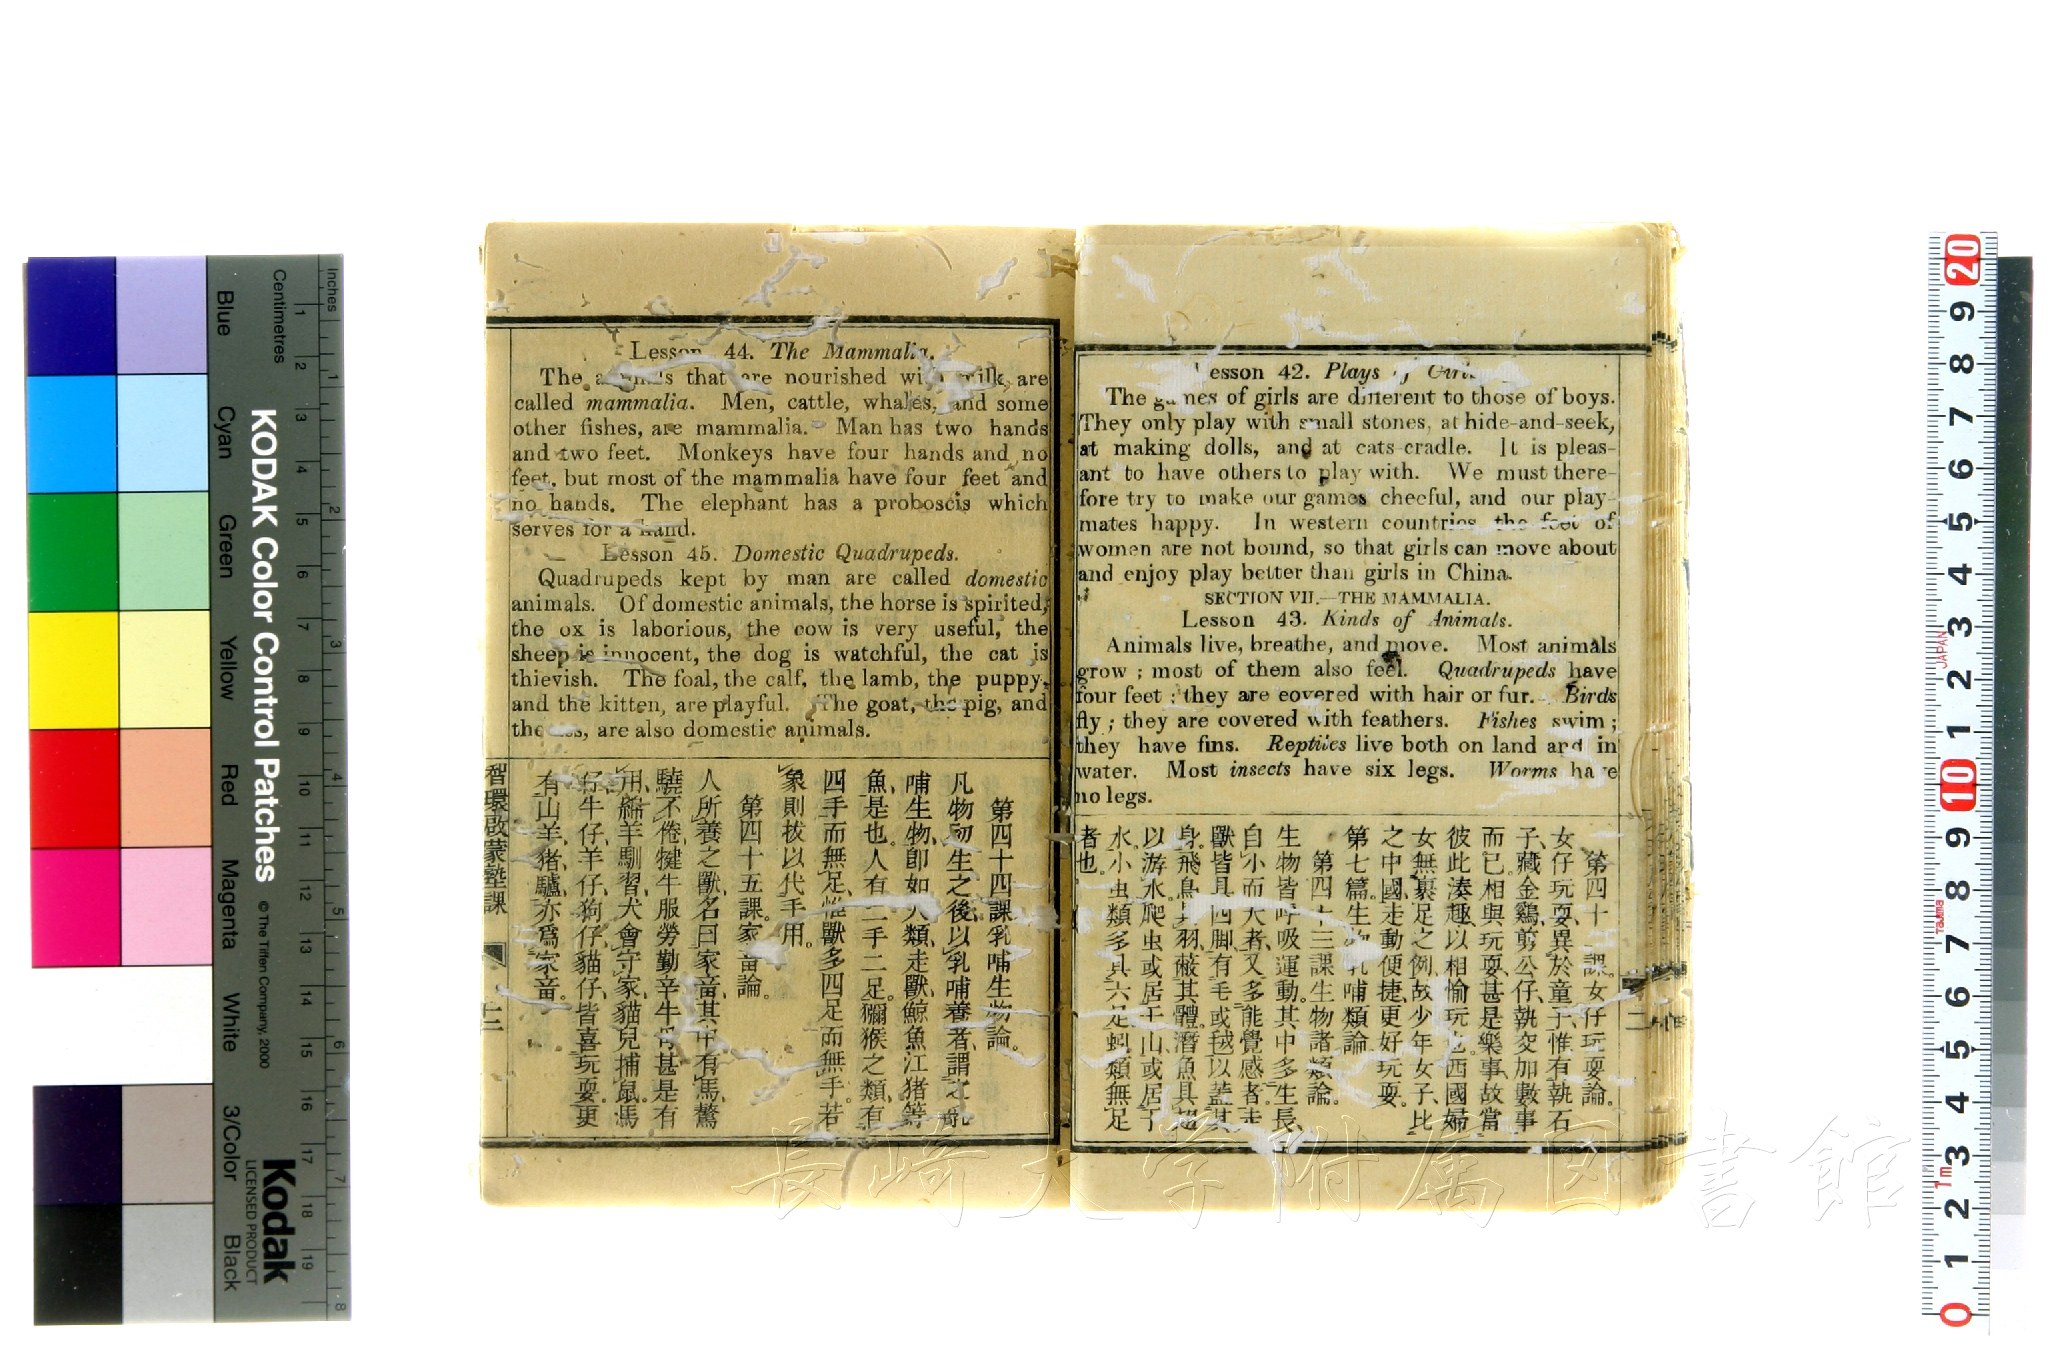 Lesson 42. Plays of Girls
The games of girls are different to those of boys.
They only play with small stones, at hide-and-seek,
at making dolls, and at cats-cradle. It is pleas-
ant to have others to play with. We must there-
fore try to make our games cheeful, and our play-
mates happy. In western countries the feet of
women are not bound, so that girls can move about
and enjoy play better than girls in China.
SECTION VII.—THE MAMMALIA.
Lesson 43. Kinds of Animals.
Animals live, breathe, and move. Most animals
grow; most of them also feel. Quadrupeds have
four feet; they are covered with hair or fur. Birds
fly; they are covered with feathers. Fishes swim;
they have fins. Reptiles live both on land and in
water. Most insects have six legs. Worms have
no legs.
第四十二課女仔玩耍論。
女仔玩耍、異於童子、惟有執石
子、藏金鷄、剪公仔、執交加數事
而已。相與玩耍、甚是樂事、故當
彼此湊趣、以相愉玩也。西國婦
女無裹足之例、故少年女子、比
之中國、走動便捷、更好玩耍。
第七篇。生物乳哺類論
第四十三課生物諸類論。
生物皆呼吸運動。其中多生長、
自小而大者、又多能覺感者。走
獸皆具四脚、有毛或毧以蓋其
身。飛鳥具羽、蔽其體。潛魚具翅
以游水。爬虫或居于山、或居于
水。小虫類多具六足。蚓類無足
者也。
Lesson 44. The Mammalia.
The animals that are nourished with milk are
called mammalia. Men, cattle, whales, and some
other fishes, are mammalia. Man has two hands
and two feet. Monkeys have four hands and no
feet, but most of the mammalia have four feet and
no hands. The elephant has a proboscis which
serves for a hand.
Lesson 45. Domestic Quadrupeds.
Quadrupeds kept by man are called domestic
animals. Of domestic animals, the horse is spirited,
the ox is laborious, the cow is very useful, the
sheep is innocent, the dog is watchful, the cat is
thievish. The foal, the calf, the lamb, the puppy,
and the kitten, are playful. The goat, the pig, and
the ass, are also domestic animals.
第四十四課乳哺生物論。
凡物初生之後、以乳哺養者、謂之乳
哺生物、卽如人類、走獸、鯨魚、江猪等
魚、是也。人有二手二足。獼猴之類、有
四手而無足、惟獸多四足而無手。若
象則拔以代手用。
第四十五課家畜論。
人所養之獸、名曰家畜、其中有馬、驁
驍不倦、犍牛服勞勤辛、牛母甚是有
用、綿羊馴習、犬會守家、貓兒捕鼠。馬
仔、牛仔、羊仔、狗仔、貓仔、皆喜玩耍。更
有山羊、猪、驢、亦爲家畜。
智環啟蒙塾課
十二
KODAK Color Control Patches
© The Tiffen Company, 2000
Kodak
LICENSED PRODUCT
Inches
Centimetres
Blue
Cyan
Green
Yellow
Red
Magenta
White
3/Color
Black
1 2 3 4 5 6 7 8 9 10 11 12 13 14 15 16 17 18 19
1 2 3 4 5 6 7 8
20 9 8 7 6 5 4 3 2 1 10 9 8 7 6 5 4 3 2 1 0
JAPAN
Tajima
1m
長崎大学附属図書館